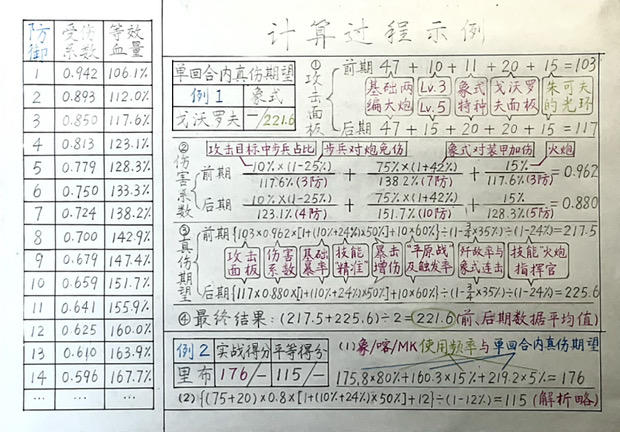 计算过程示例
防御 受伤系数 等效血量
1 0.942 106.1%
2 0.893 112.0%
3 0.850 117.6%
4 0.813 123.1%
5 0.779 128.3%
6 0.750 133.3%
7 0.724 138.2%
8 0.700 142.9%
9 0.679 147.4%
10 0.659 151.7%
11 0.641 155.9%
12 0.625 160.0%
13 0.610 163.9%
14 0.596 167.7%
… … …
单回合内真伤期望
例1 象式
戈沃罗夫 一/221.6
①攻击面板
前期 47 + 10 + 11 + 20 + 15 = 103
基础两编大炮 Lv.3 Lv.5 象式特种 戈沃罗夫面板 朱可夫的光环
后期 47 + 15 + 20 + 20 + 15 = 117
②伤害系数
攻击目标中步兵占比 步兵对炮兔伤 象式对装甲加伤 火炮
前期 10%×(1-25%)/117.6%(3防) + 75%×(1+42%)/138.2%(7防) + 15%/117.6%(3防) = 0.962
后期 10%×(1-25%)/123.1%(4防) + 75%×(1+42%)/151.7%(10防) + 15%/128.3%(5防) = 0.880
③真伤期望
前期{103×0.962×[1+(10%+24%)×50%]+10×60%}÷(1-3/4×35%)÷(1-24%)=217.5
攻击面板 伤害系数 基础暴率 技能"精准" 暴击增伤 "平原战"及触发率 歼敌率与象式连击 技能"火炮指挥官"
后期{117×0.880×[1+(10%+24%)×50%]+10×60%}÷(1-3/4×35%)÷(1-24%)=225.6
④最终结果:(217.5+225.6)÷2=221.6(前、后期数据平均值)
例2 实战得分 平等得分
里布 176/一 115/一
(1)象/喀/MK使用频率与单回合内真伤期望
175.8×80%+160.3×15%+219.2×5%=176
(2){(75+20)×0.8×[1+(10%+24%)×50%]+12}÷(1-12%)=115(解析略)